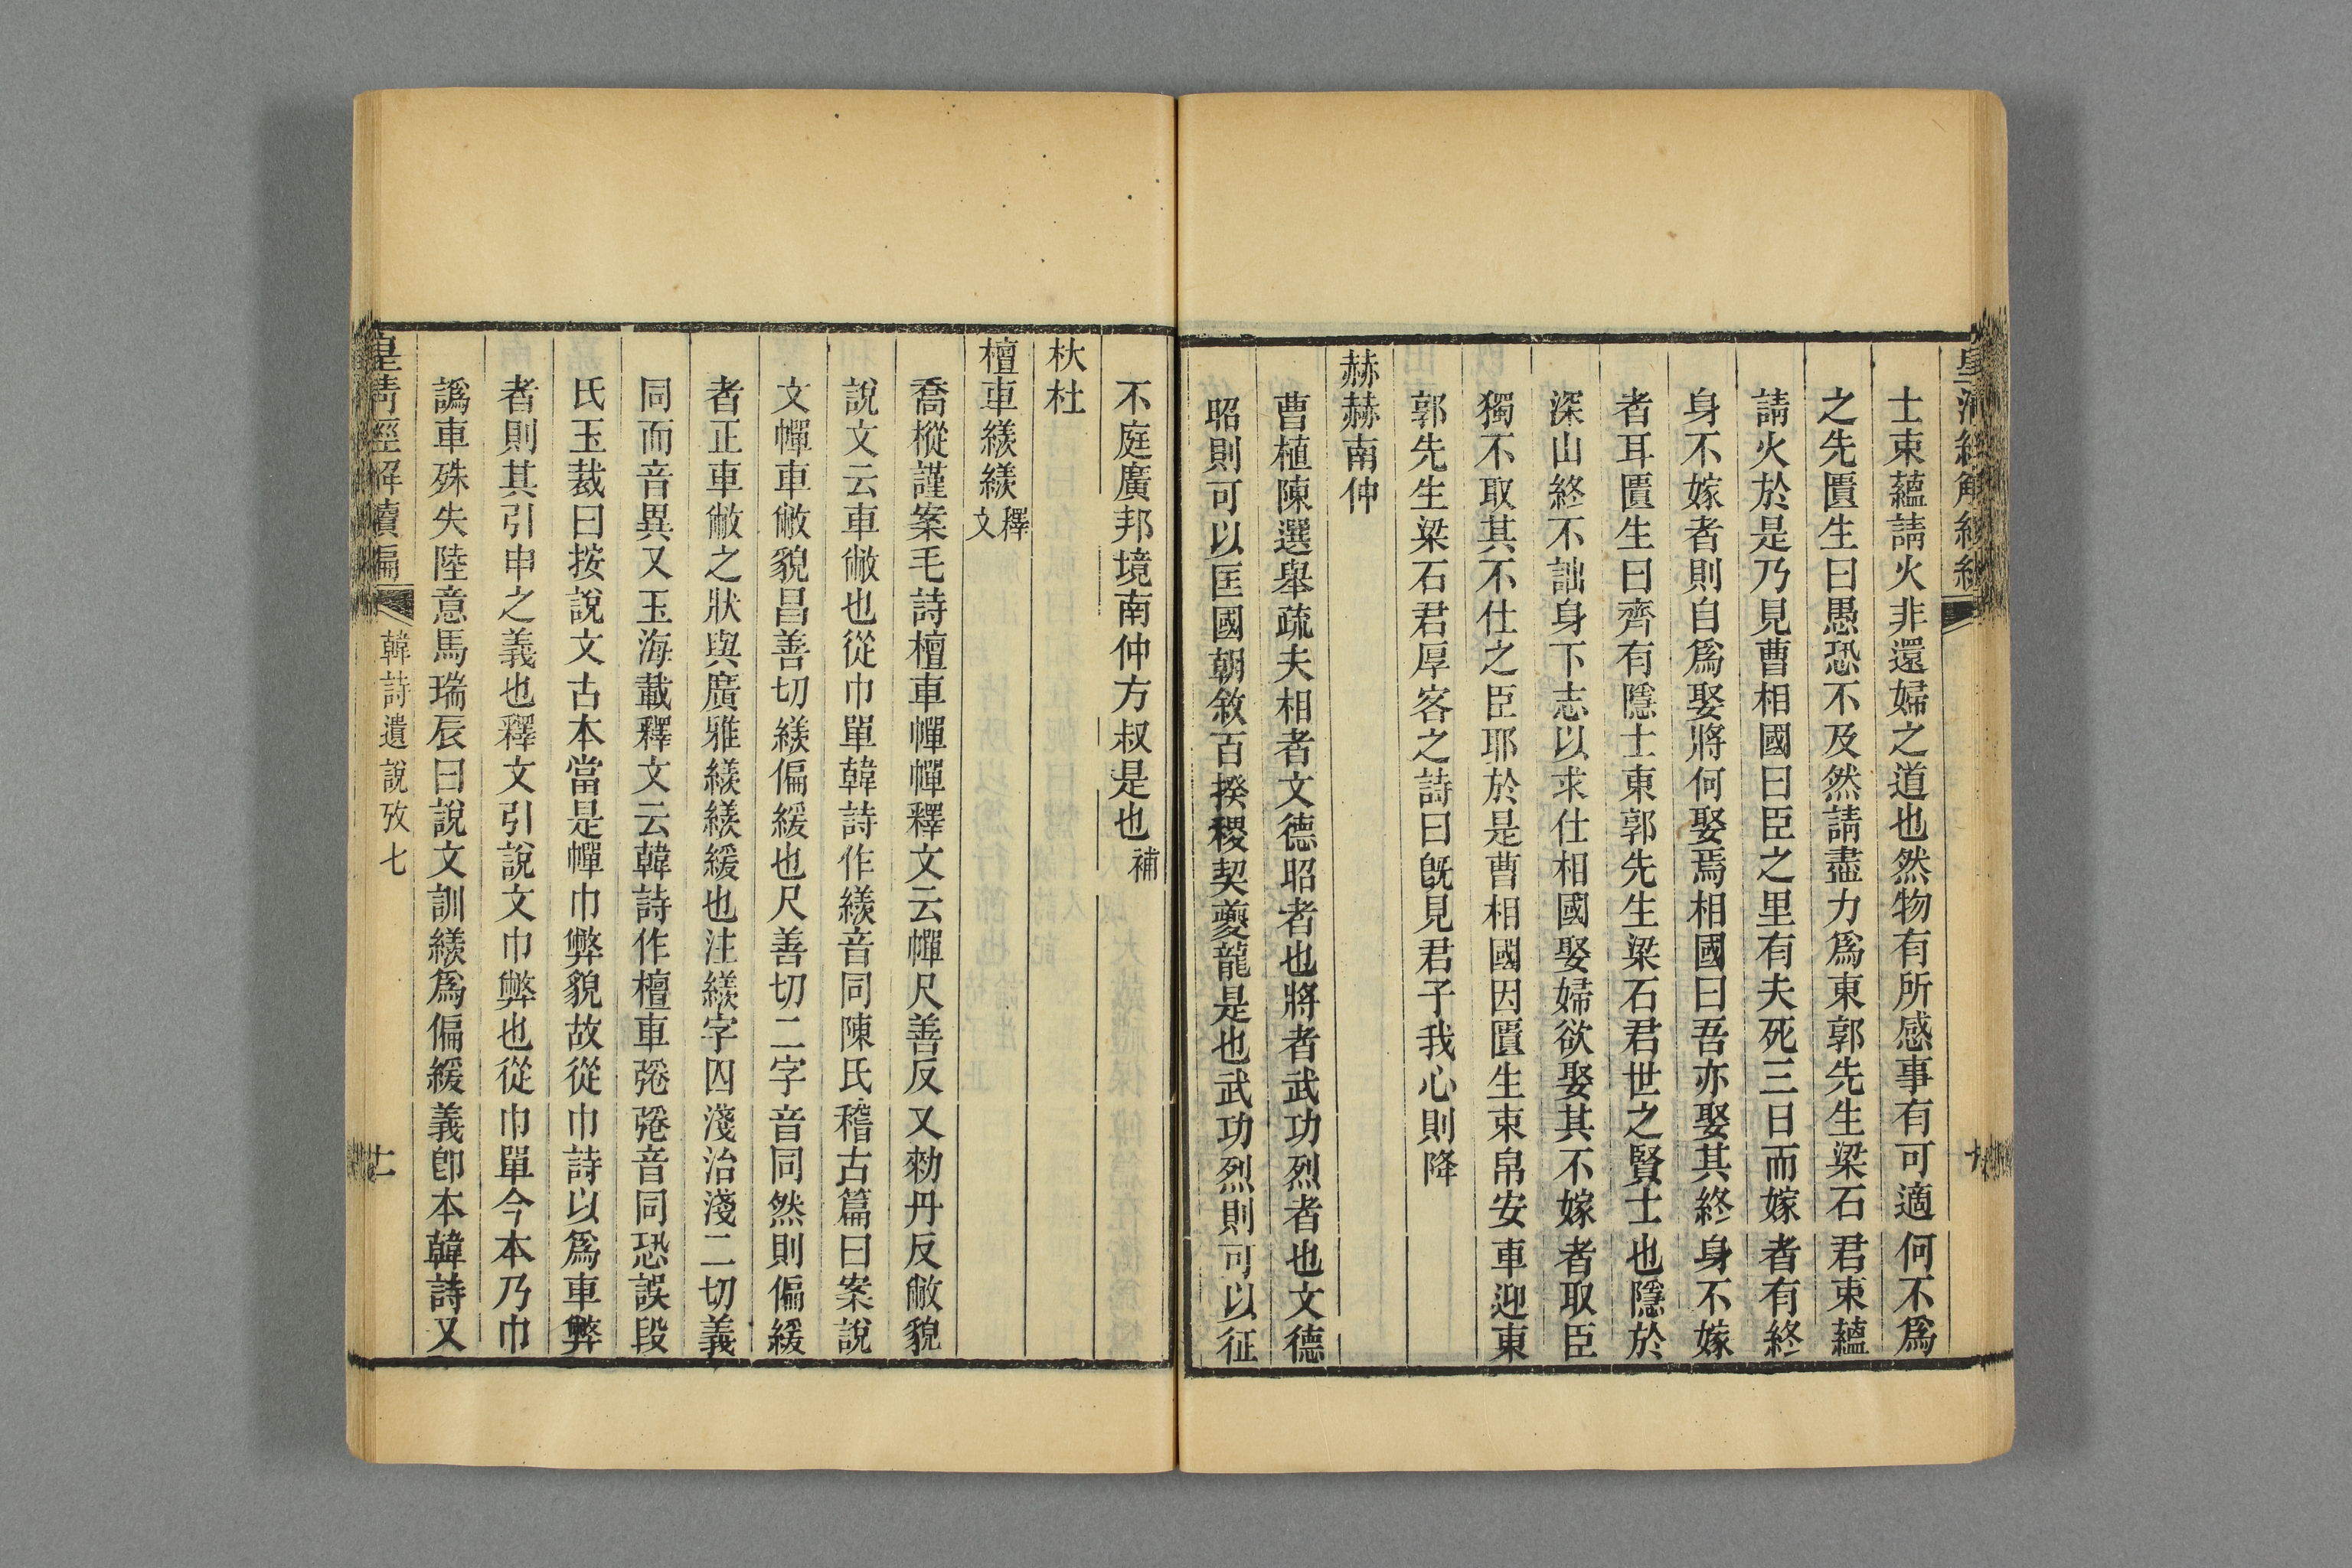 士束蘊請火非還婦之道也然物有所感事有可適何不爲
之先匱生曰愚恐不及然請盡力爲東郭先生梁石君束蘊
請火於是乃見曹相國曰臣之里有夫死三日而嫁者有終
身不嫁者則自爲娶將何娶焉相國曰吾亦娶其終身不嫁
者耳匱生曰齊有隱士東郭先生梁石君世之賢士也隱於
深山終不詘身下志以求仕相國娶婦欲娶其不嫁者取臣
獨不取其不仕之臣耶於是曹相國因匱生束帛安車迎東
郭先生梁石君厚客之詩曰旣見君子我心則降
赫赫南仲
曹植陳選舉疏夫相者文德昭者也將者武功烈者也文德
昭則可以匡國朝敘百揆稷契夔龍是也武功烈則可以征
不庭廣邦境南仲方叔是也補
杕杜
檀車緂緂釋文
喬樅謹案毛詩檀車幝幝釋文云幝尺善反又勑丹反敝貌
說文云車敝也從巾單韓詩作緂音同陳氏稽古篇曰案說
文幝車敝貌昌善切緂偏緩也尺善切二字音同然則偏緩
者正車敝之狀與廣雅緂緂緩也注緂字四淺治淺二切義
同而音異又玉海載釋文云韓詩作檀車㢲㢲音同恐誤段
氏玉裁曰按說文古本當是幝巾弊貌故從巾詩以爲車弊
者則其引申之義也釋文引說文巾弊也從巾單今本乃巾
譌車殊失陸意馬瑞辰曰說文訓緂爲偏緩義卽本韓詩又
皇淸經解續編
韓詩遺說攷七
十一